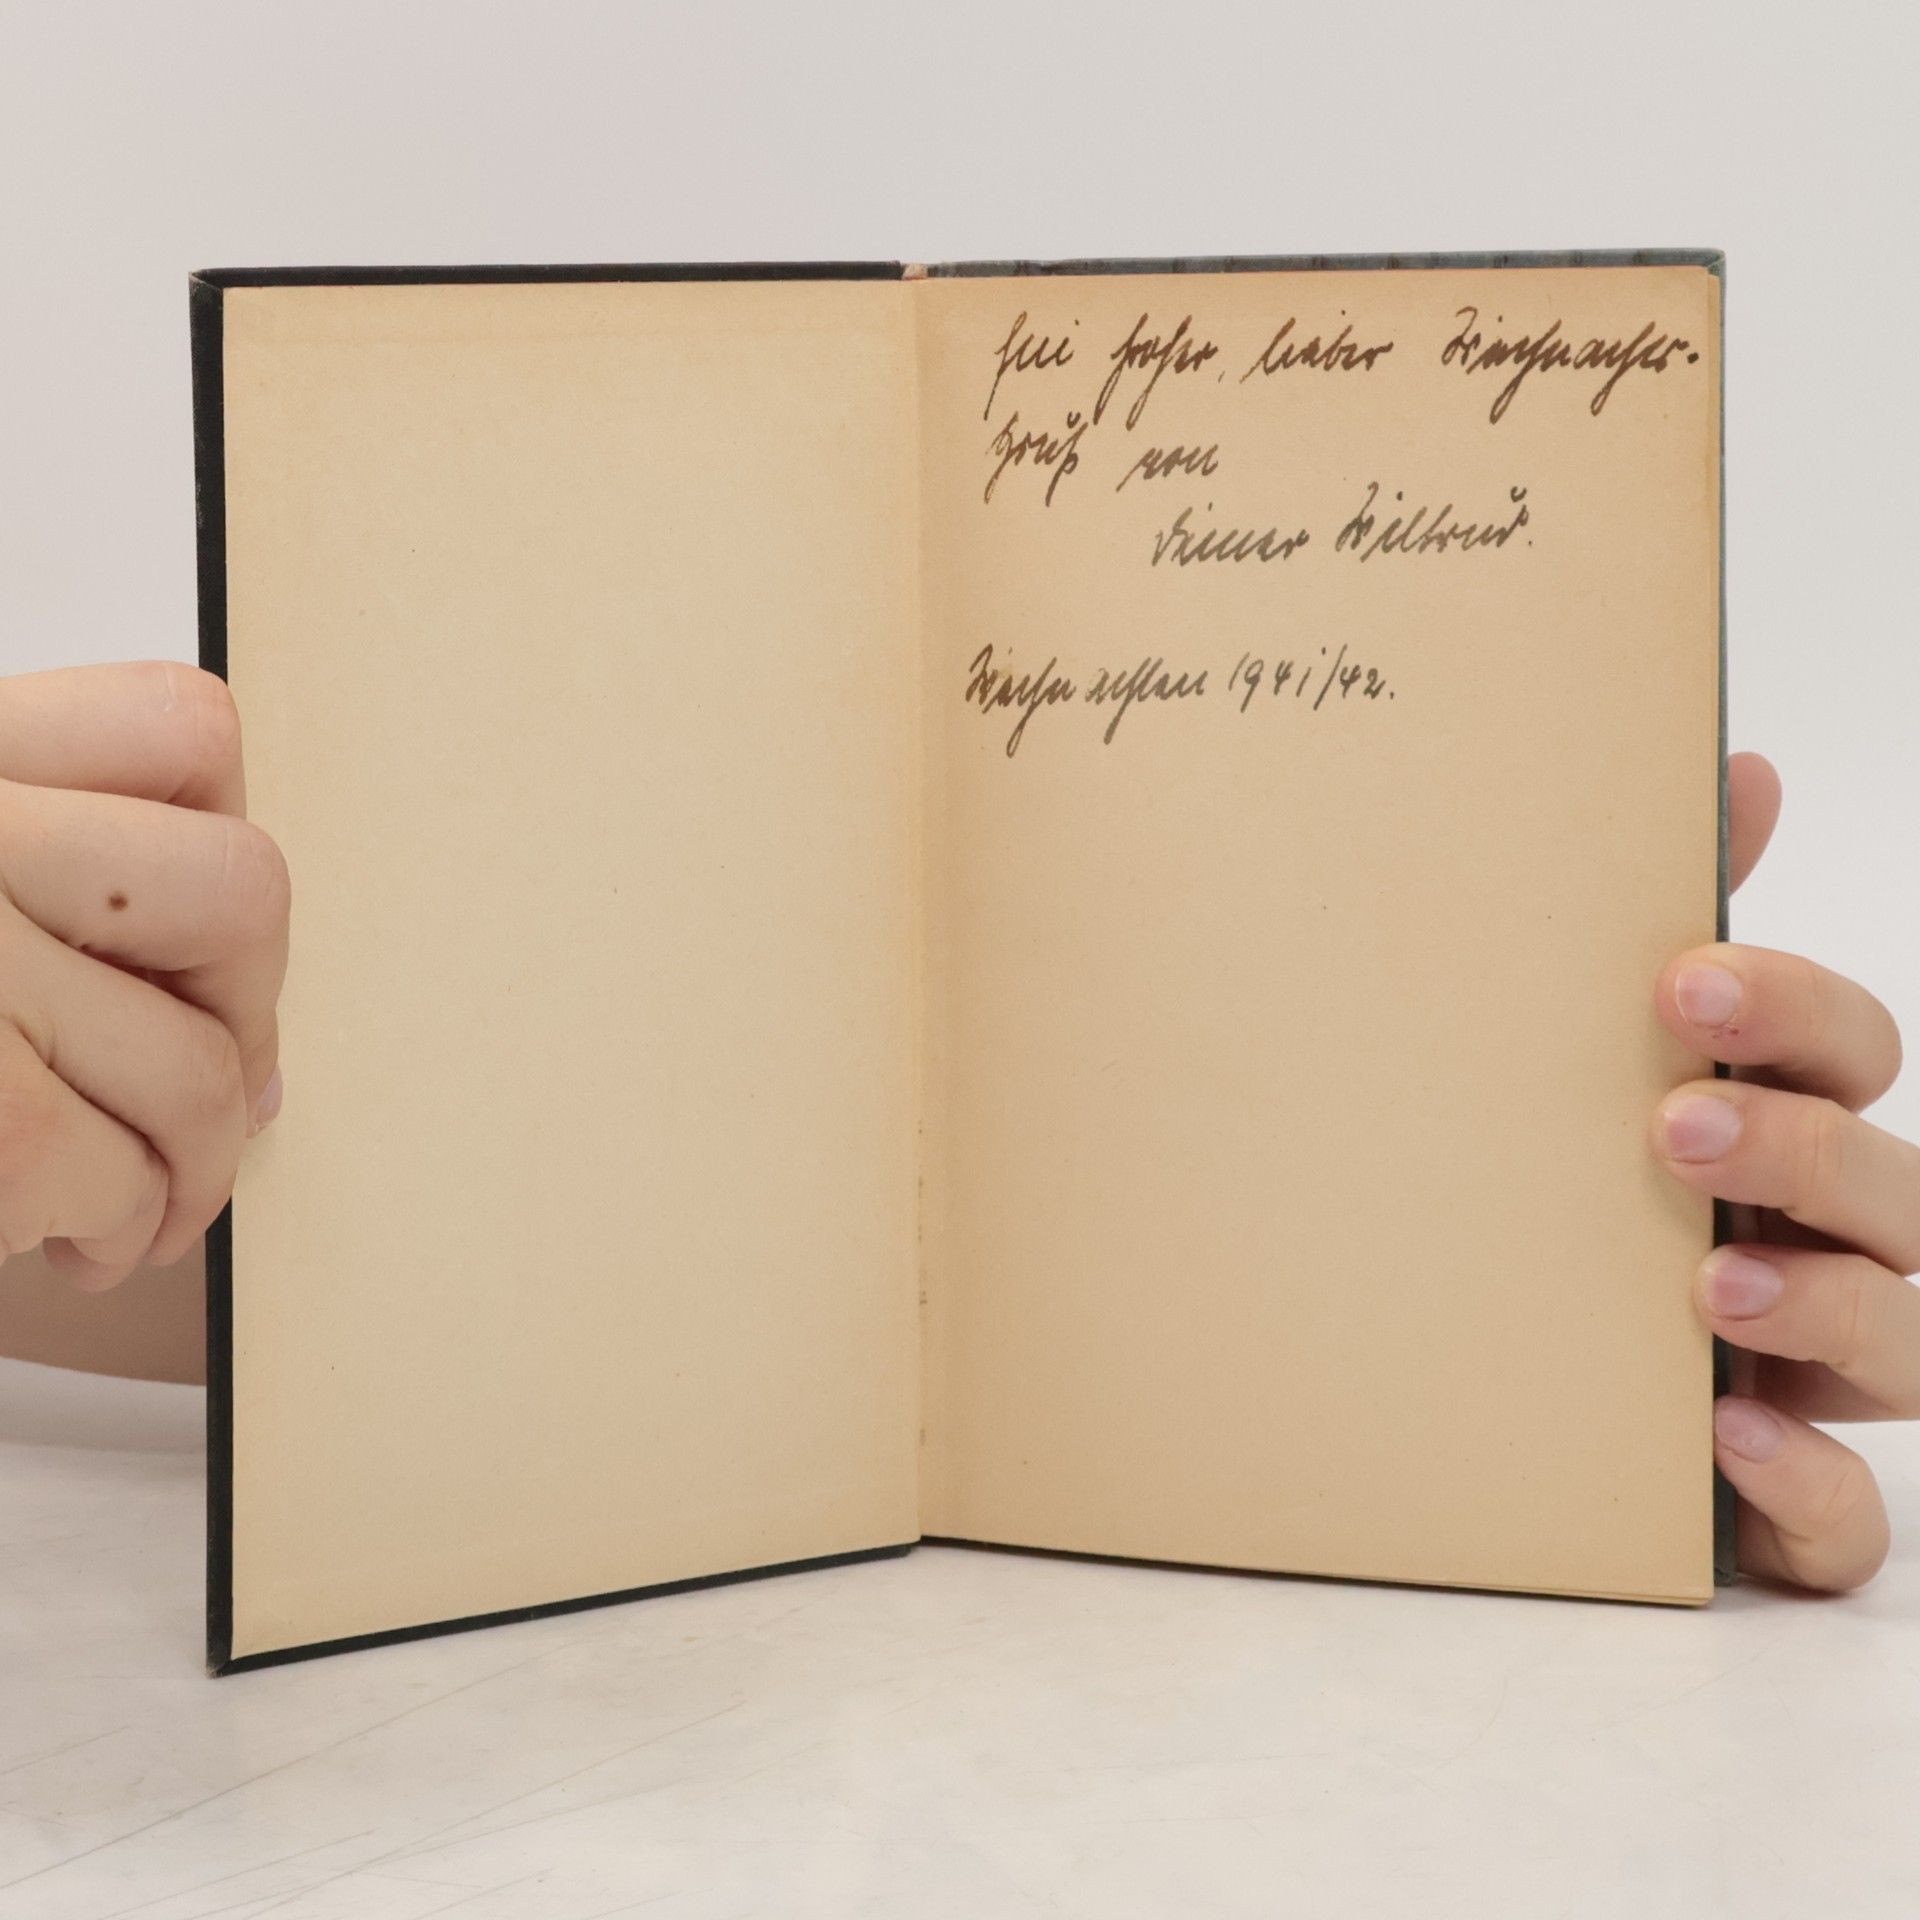 Ein froher, lieber Weihnachts-
gruß von
Deiner Wiltrud.
Weihnachten 1941/42.